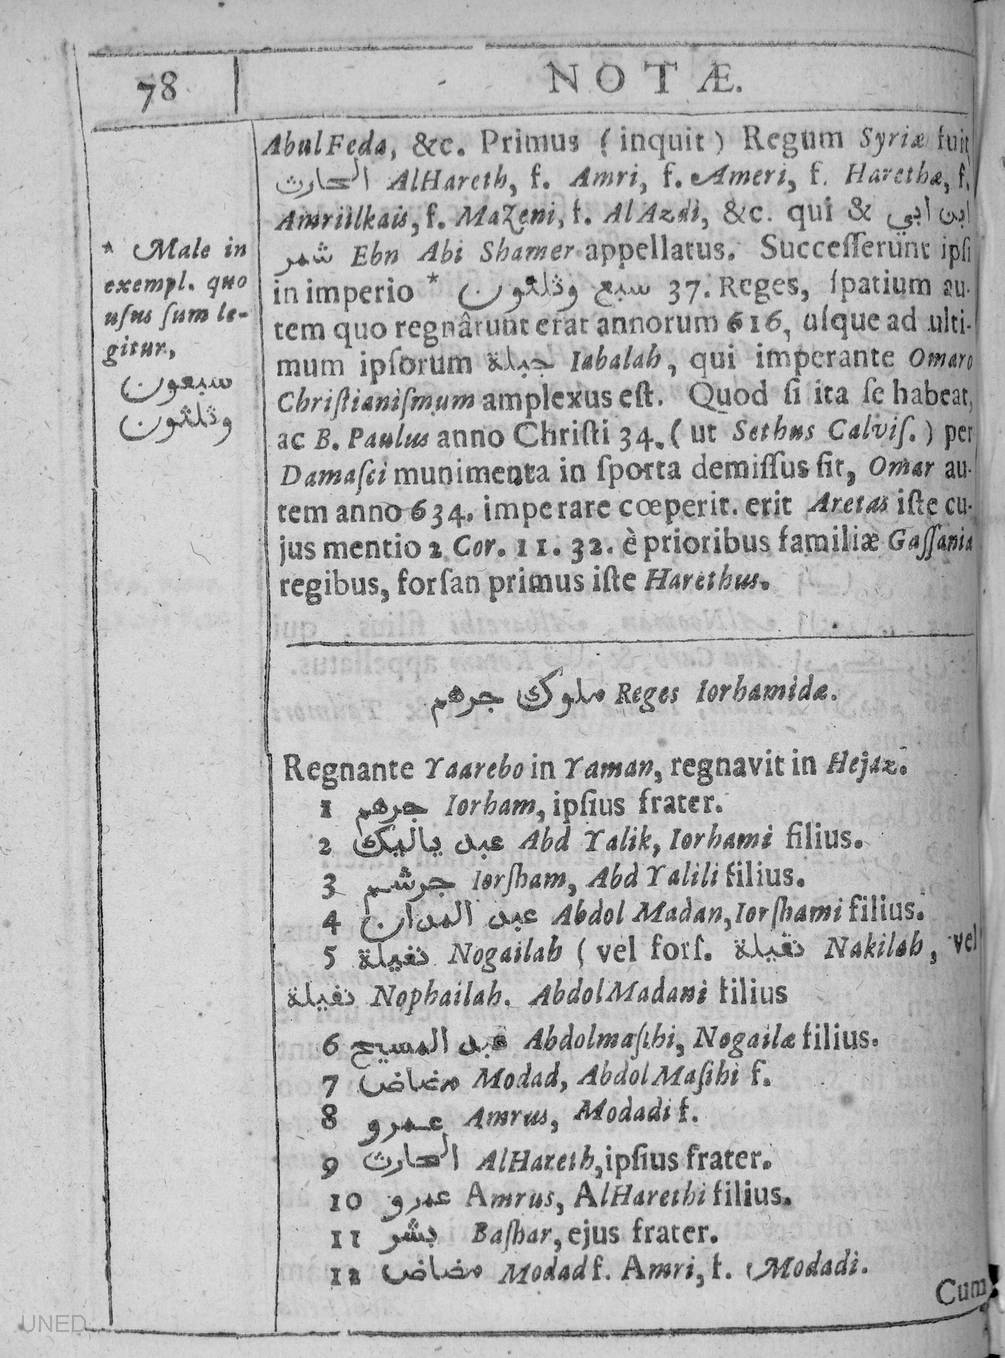 78
NOTÆ.
AbulFeda, &c. Primus (inquit) Regum Syriæ fuit
الحارث AlHareth, f. Amri, f. Ameri, f. Harethæ, f.
Amriilkais, f. MaZeni, f. AlAzdi, &c. qui & ابن ابي
شمر Ebn Abi Shamer appellatus. Succeſſerunt ipſi
in imperio * سبع وثلثون 37. Reges, ſpatium au-
tem quo regnârunt erat annorum 616, uſque ad ulti-
mum ipſorum جبلة Iabalah, qui imperante Omaro
Chriſtianiſmum amplexus eſt. Quod ſi ita ſe habeat,
ac B. Paulus anno Chriſti 34. (ut Sethus Calviſ.) per
Damaſci munimenta in ſporta demiſſus ſit, Omar au-
tem anno 634. imperare cœperit. erit Aretas iſte cu-
jus mentio 2 Cor. 11. 32. è prioribus familiæ Gaſſaniæ
regibus, forſan primus iſte Harethus.
* Male in
exempl. quo
uſus ſum le-
gitur,
سبعون
وثلثون
ملوك جرهم Reges Iorhamidæ.
Regnante Yaarebo in Yaman, regnavit in Hejaz.
1 جرهم Iorham, ipſius frater.
2 عبد ياليك Abd Yalik, Iorhami filius.
3 جرشم Iorſham, Abd Yalili filius.
4 عبد المدان Abdol Madan, Iorſhami filius.
5 نغيلة Nogailah (vel forſ. نقيلة Nakilah, vel
نفيلة Nophailah. AbdolMadani filius
6 عبد المسيح Abdolmaſihi, Nogailæ filius.
7 مضاض Modad, AbdolMaſihi f.
8 عمرو Amrus, Modadi f.
9 الحارث AlHareth, ipſius frater.
10 عمرو Amrus, AlHarethi filius.
11 بشر Baſhar, ejus frater.
12 مضاض Modad f. Amri, f. Modadi.
Cum
UNED